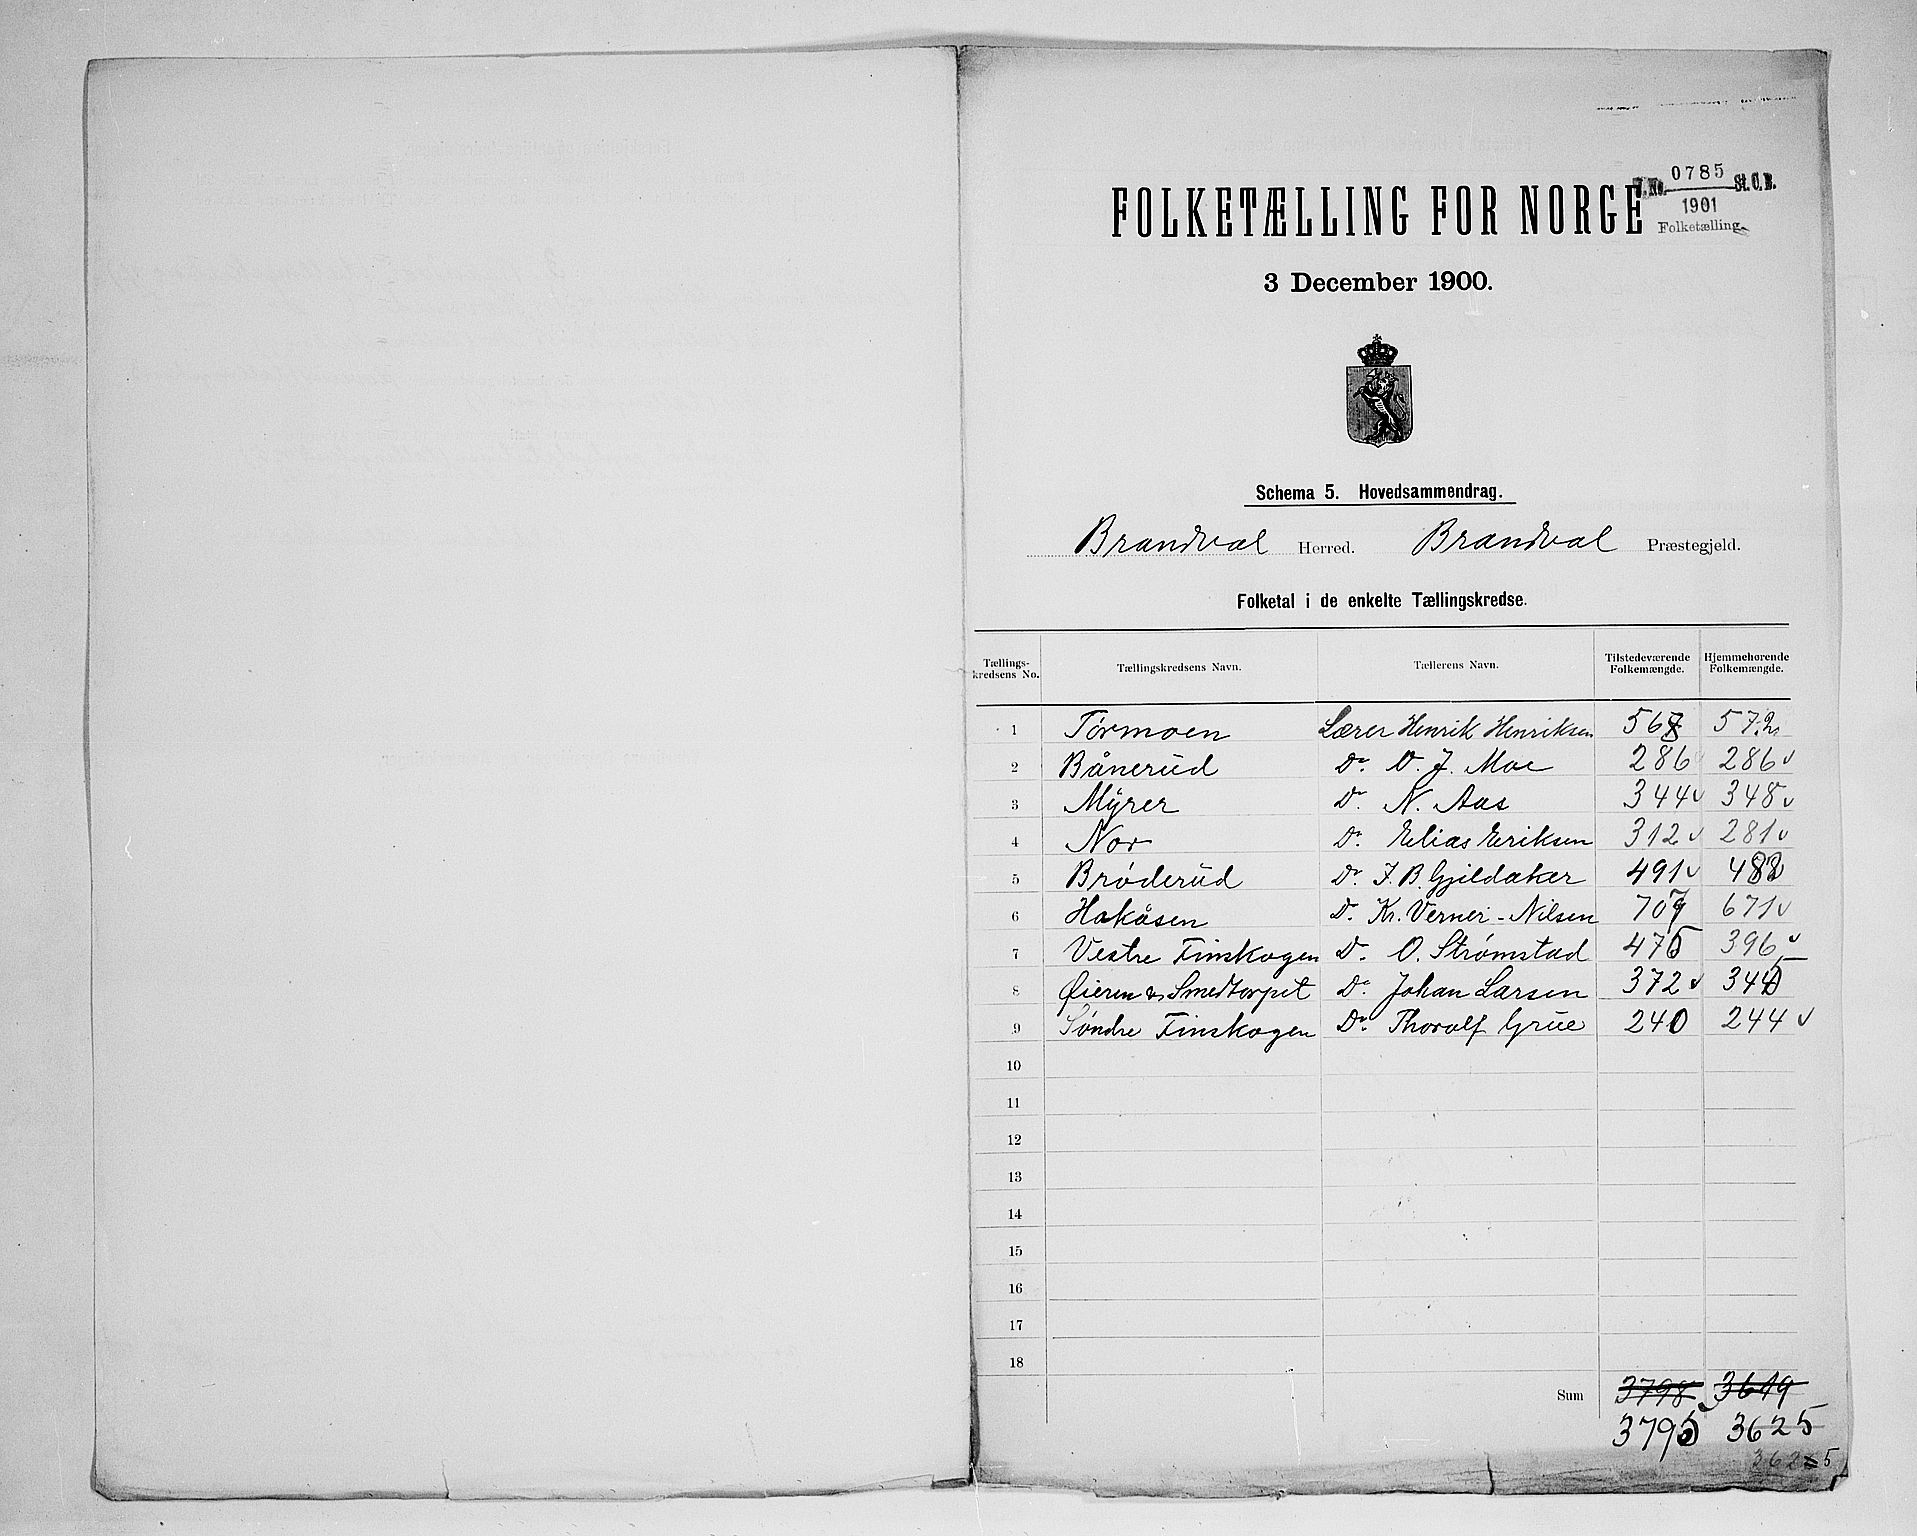 J. No. 0785 St. C. B.
1901
Folketælling.
FOLKETÆLLING FOR NORGE
3 December 1900.
Schema 5. Hovedsammendrag.
Brandval Herred. Brandval Præstegjeld.
Folketal i de enkelte Tællingskredse.
Tællings-kredsens No. Tællingskredsens Navn. Tællerens Navn. Tilstedeværende Folkemængde. Hjemmehørende Folkemængde.
1 Tørmoen Lærer Henrik Henriksen 572
2 Bånerud Do. O. J. Moe 286 286
3 Myrer Do. N. Aas 344 348
4 Nor Do. Elias Eriksen 312 281
5 Brøderud Do. J. B. Gjeldaker 491 482
6 Hokåsen Do. Kr. Verner-Nilsen 707 671
7 Vestre Finskogen Do. O. Strømstad 475 396
8 Øieren & Smedtorpet Do. Johan Larsen 372 345
9 Søndre Finskogen Do. Thorolf Grue 240 244
10
11
12
13
14
15
16
17
18
Sum 3798 3619
3795 3625
3625